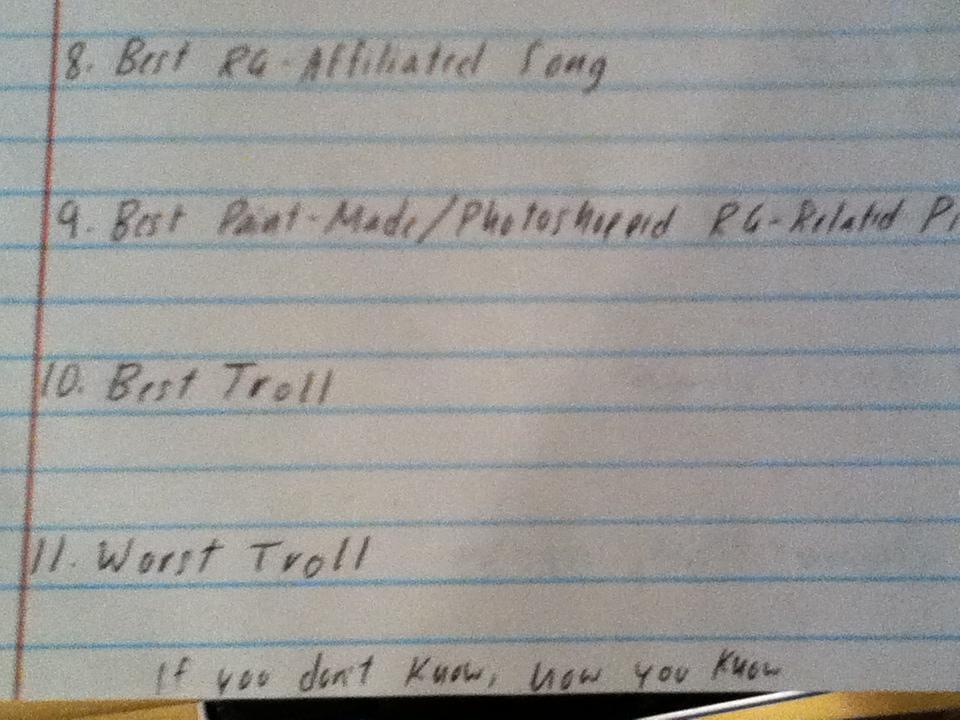 8. Best RG-Affiliated Song
9. Best Paint-Made/Photoshopped RG-Related
10. Best Troll
11. Worst Troll
If you don't know, now you know